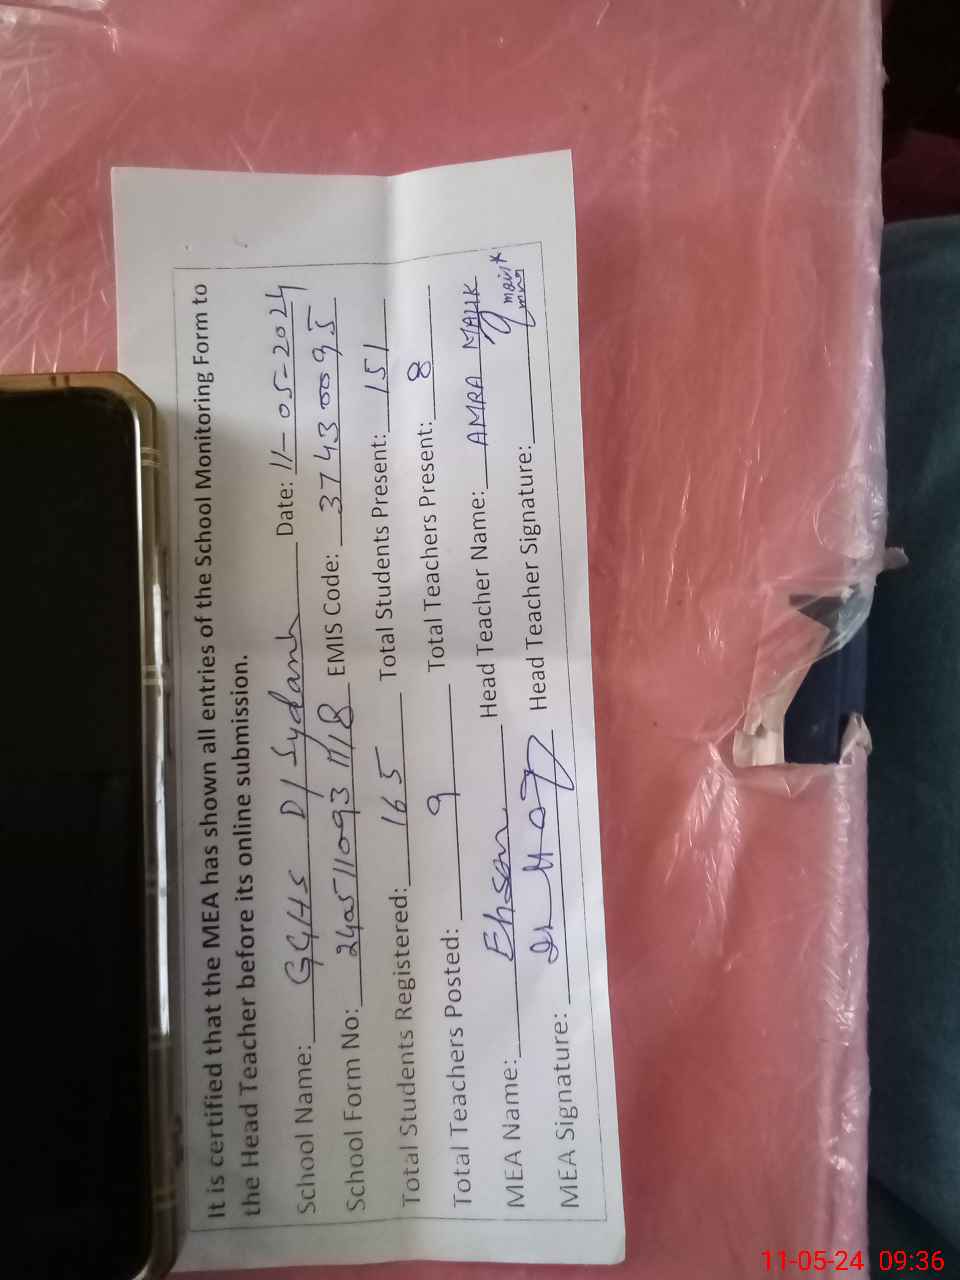 It is certified that the MEA has shown all entries of the School Monitoring Form to
the Head Teacher before its online submission.
School Name: GGHS D/Sydanh Date: 11-05-2024
School Form No: EMIS Code: 37430095
Total Students Registered: 165 Total Students Present: 151
Total Teachers Posted: 9 Total Teachers Present: 8
MEA Name: Ehsan Head Teacher Name: AMRA MALIK
MEA Signature: Head Teacher Signature:
11-05-24 09:36